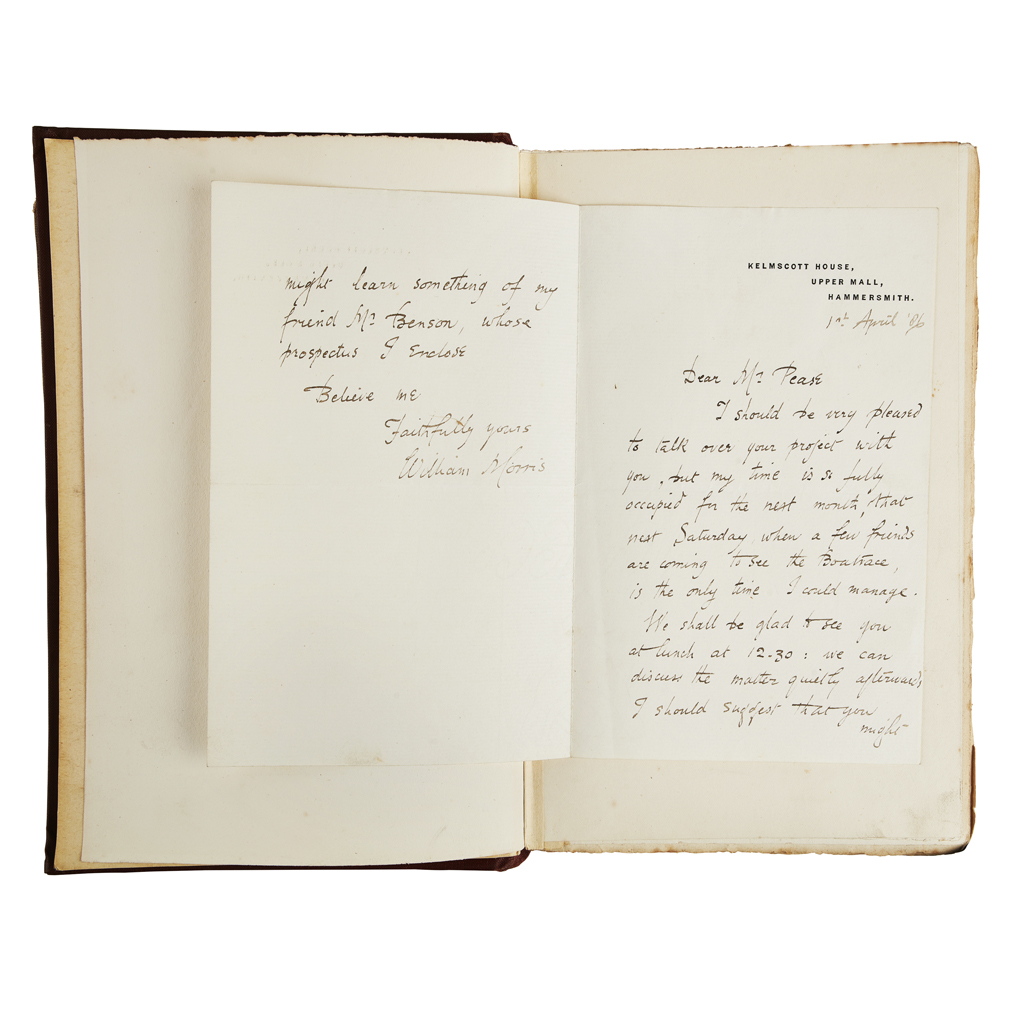 KELMSCOTT HOUSE,
UPPER MALL,
HAMMERSMITH.
1st April '86
Dear Mr Pease
I should be very pleased
to talk over your project with
you, but my time is so fully
occupied for the next month, that
next Saturday when a few friends
are coming to see the Boatrace,
is the only time I could manage.
We shall be glad to see you
at lunch at 12.30: we can
discuss the matter quietly afterwards
I should suggest that you
might
might learn something of my
friend Mr Benson, whose
prospectus I enclose
Believe me
Faithfully yours
William Morris